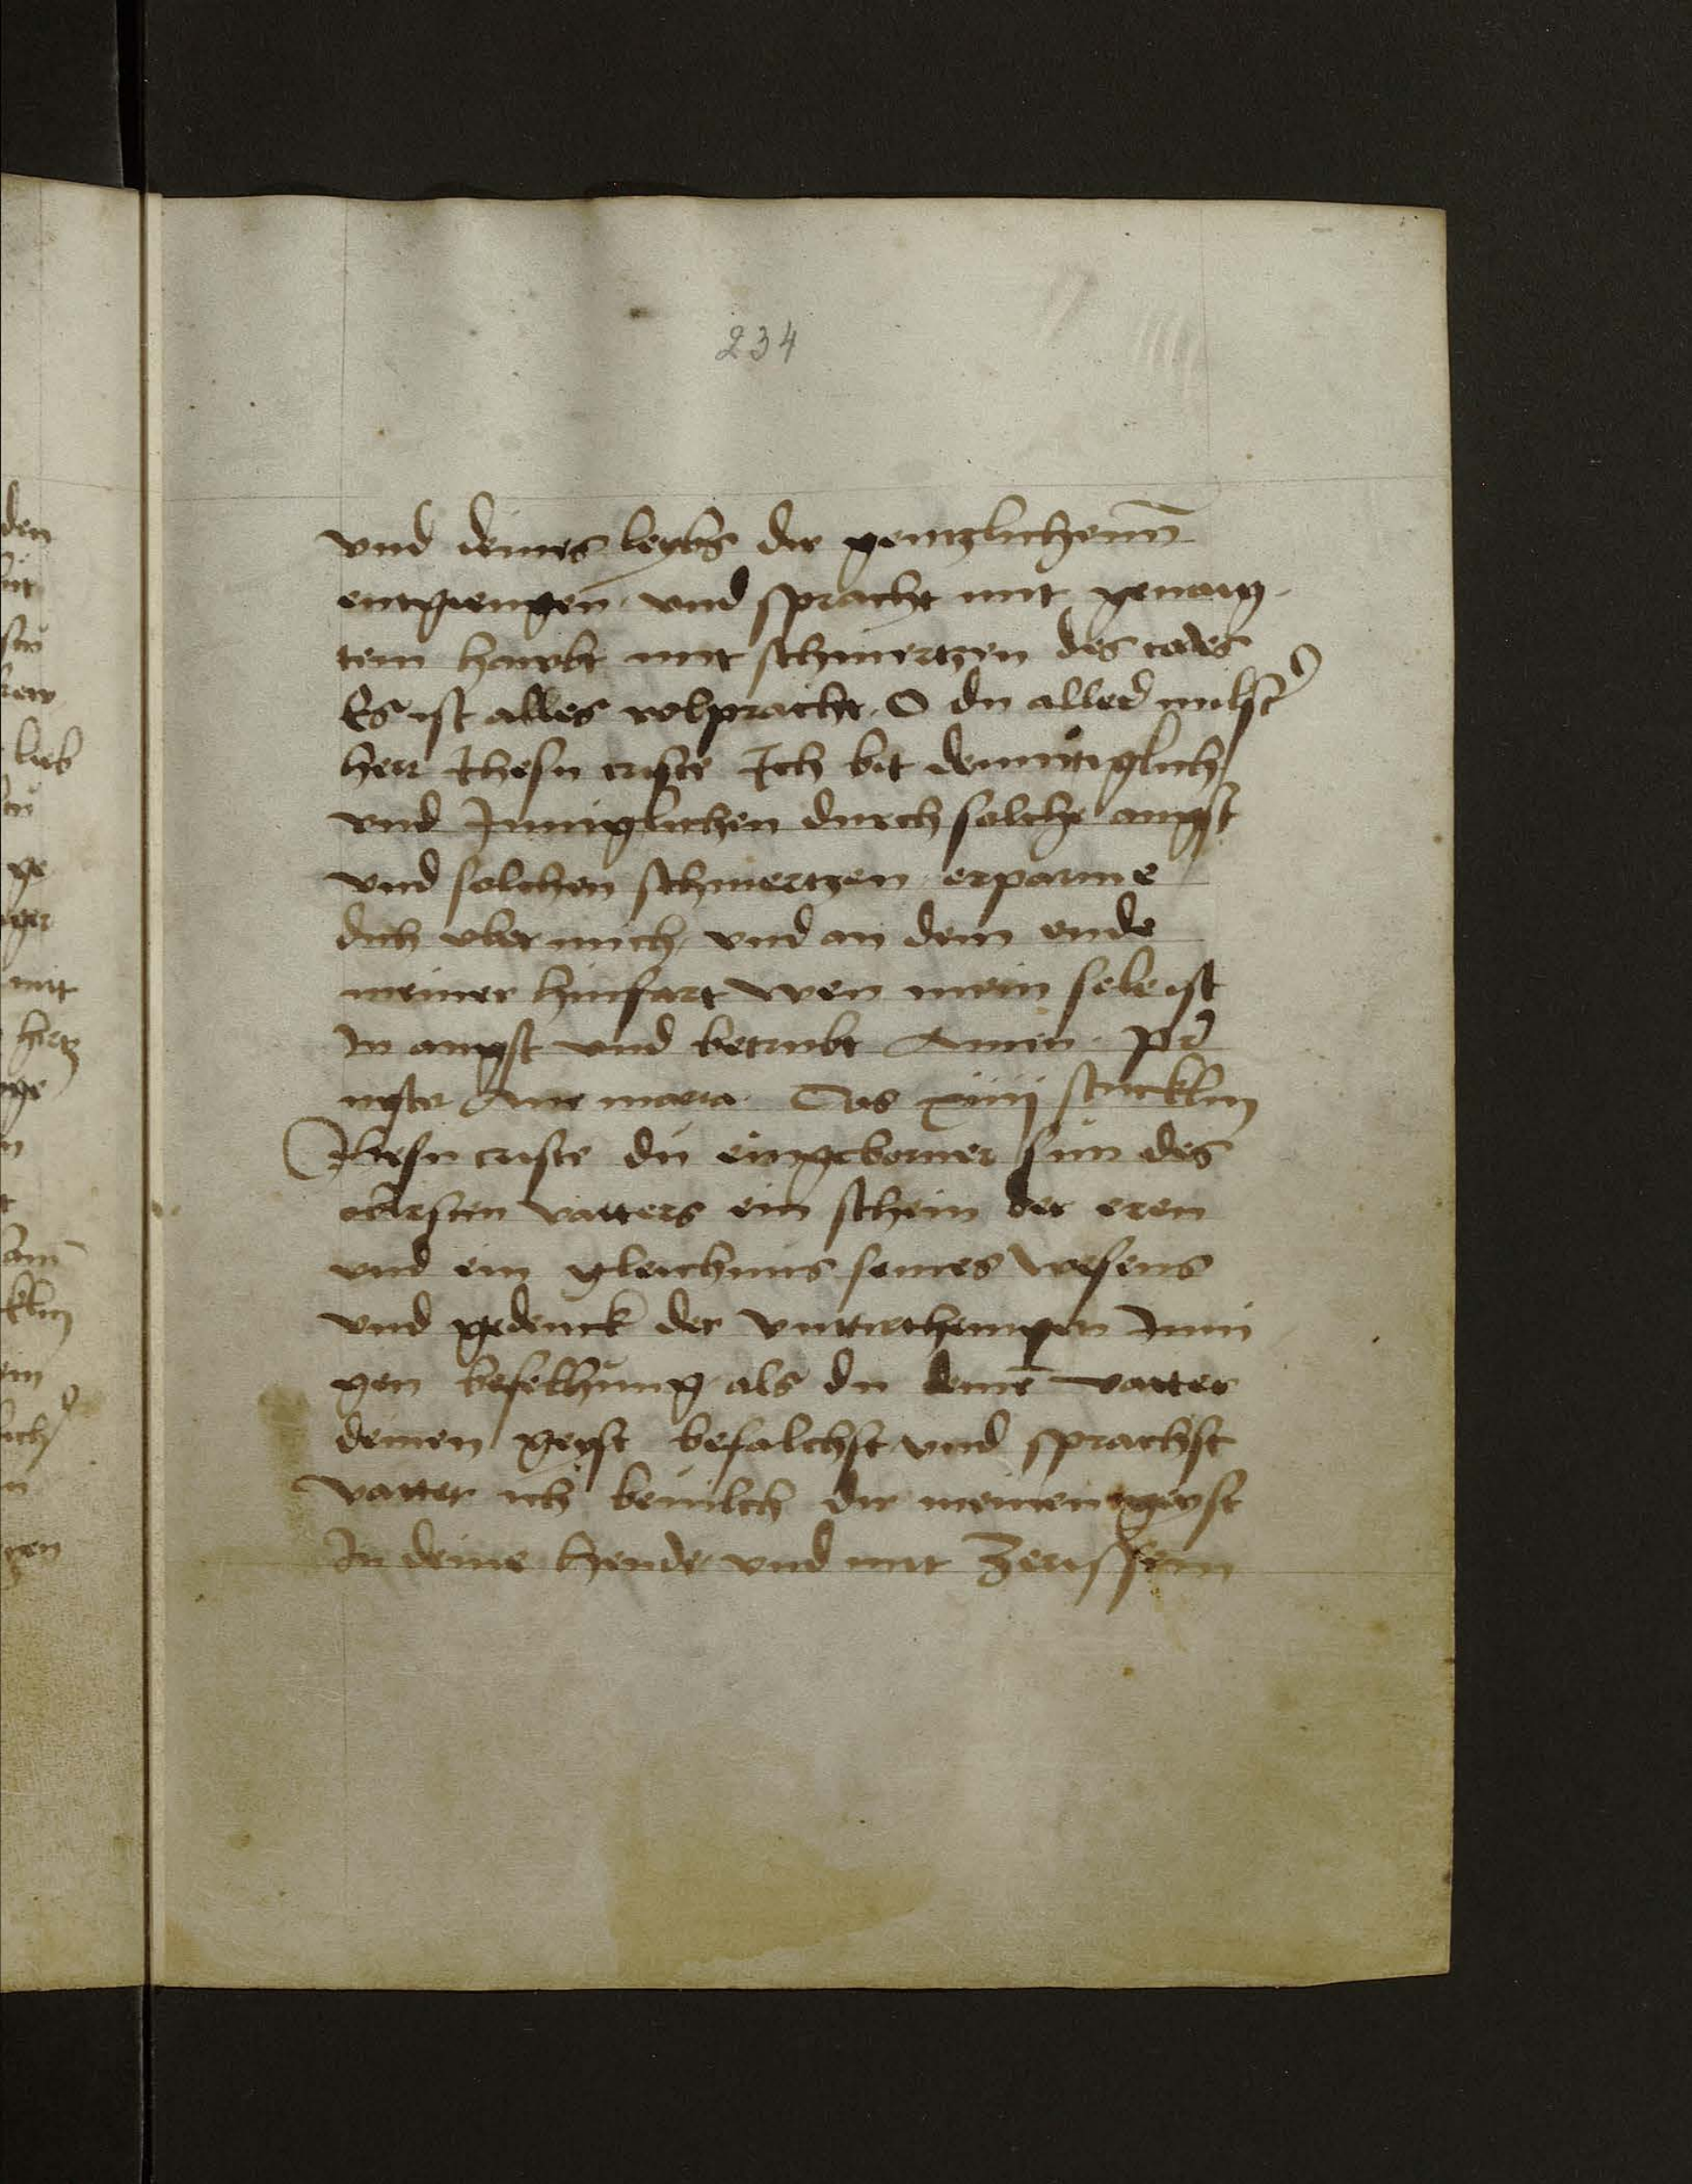 234
vnd deines leybs dir gentzlichenn̄
entgiengen vnd spracht mit genaig
tem hawbt mit schmertzen des todes
Es ist alles volpracht O du aller milst̄
herr Ihesu criste Ich bit demutiglich
vnd Inniglichen durch solche angst
vnd solchen schmertzen erparme
dich vber mich vnd an dem ende
meiner hinfart wen mein sele ist
In angst vnd betrubt Amen Pr̄
noster Aue maria Das xiiij stucklin
Ihesu criste du eingeborner sun des
obersten vatters ein schein der eren
vnd ein gleichnus seines wesens
vnd gedenck der Inni
gen befelhung als du deinē vatter
deinen geyst befalchst vnd sprachst
vatter ich beuilch dir meinen geyst
In deine hende vnd mit Zerissem
den
lieb
ge
mit
hertz
klin
gen